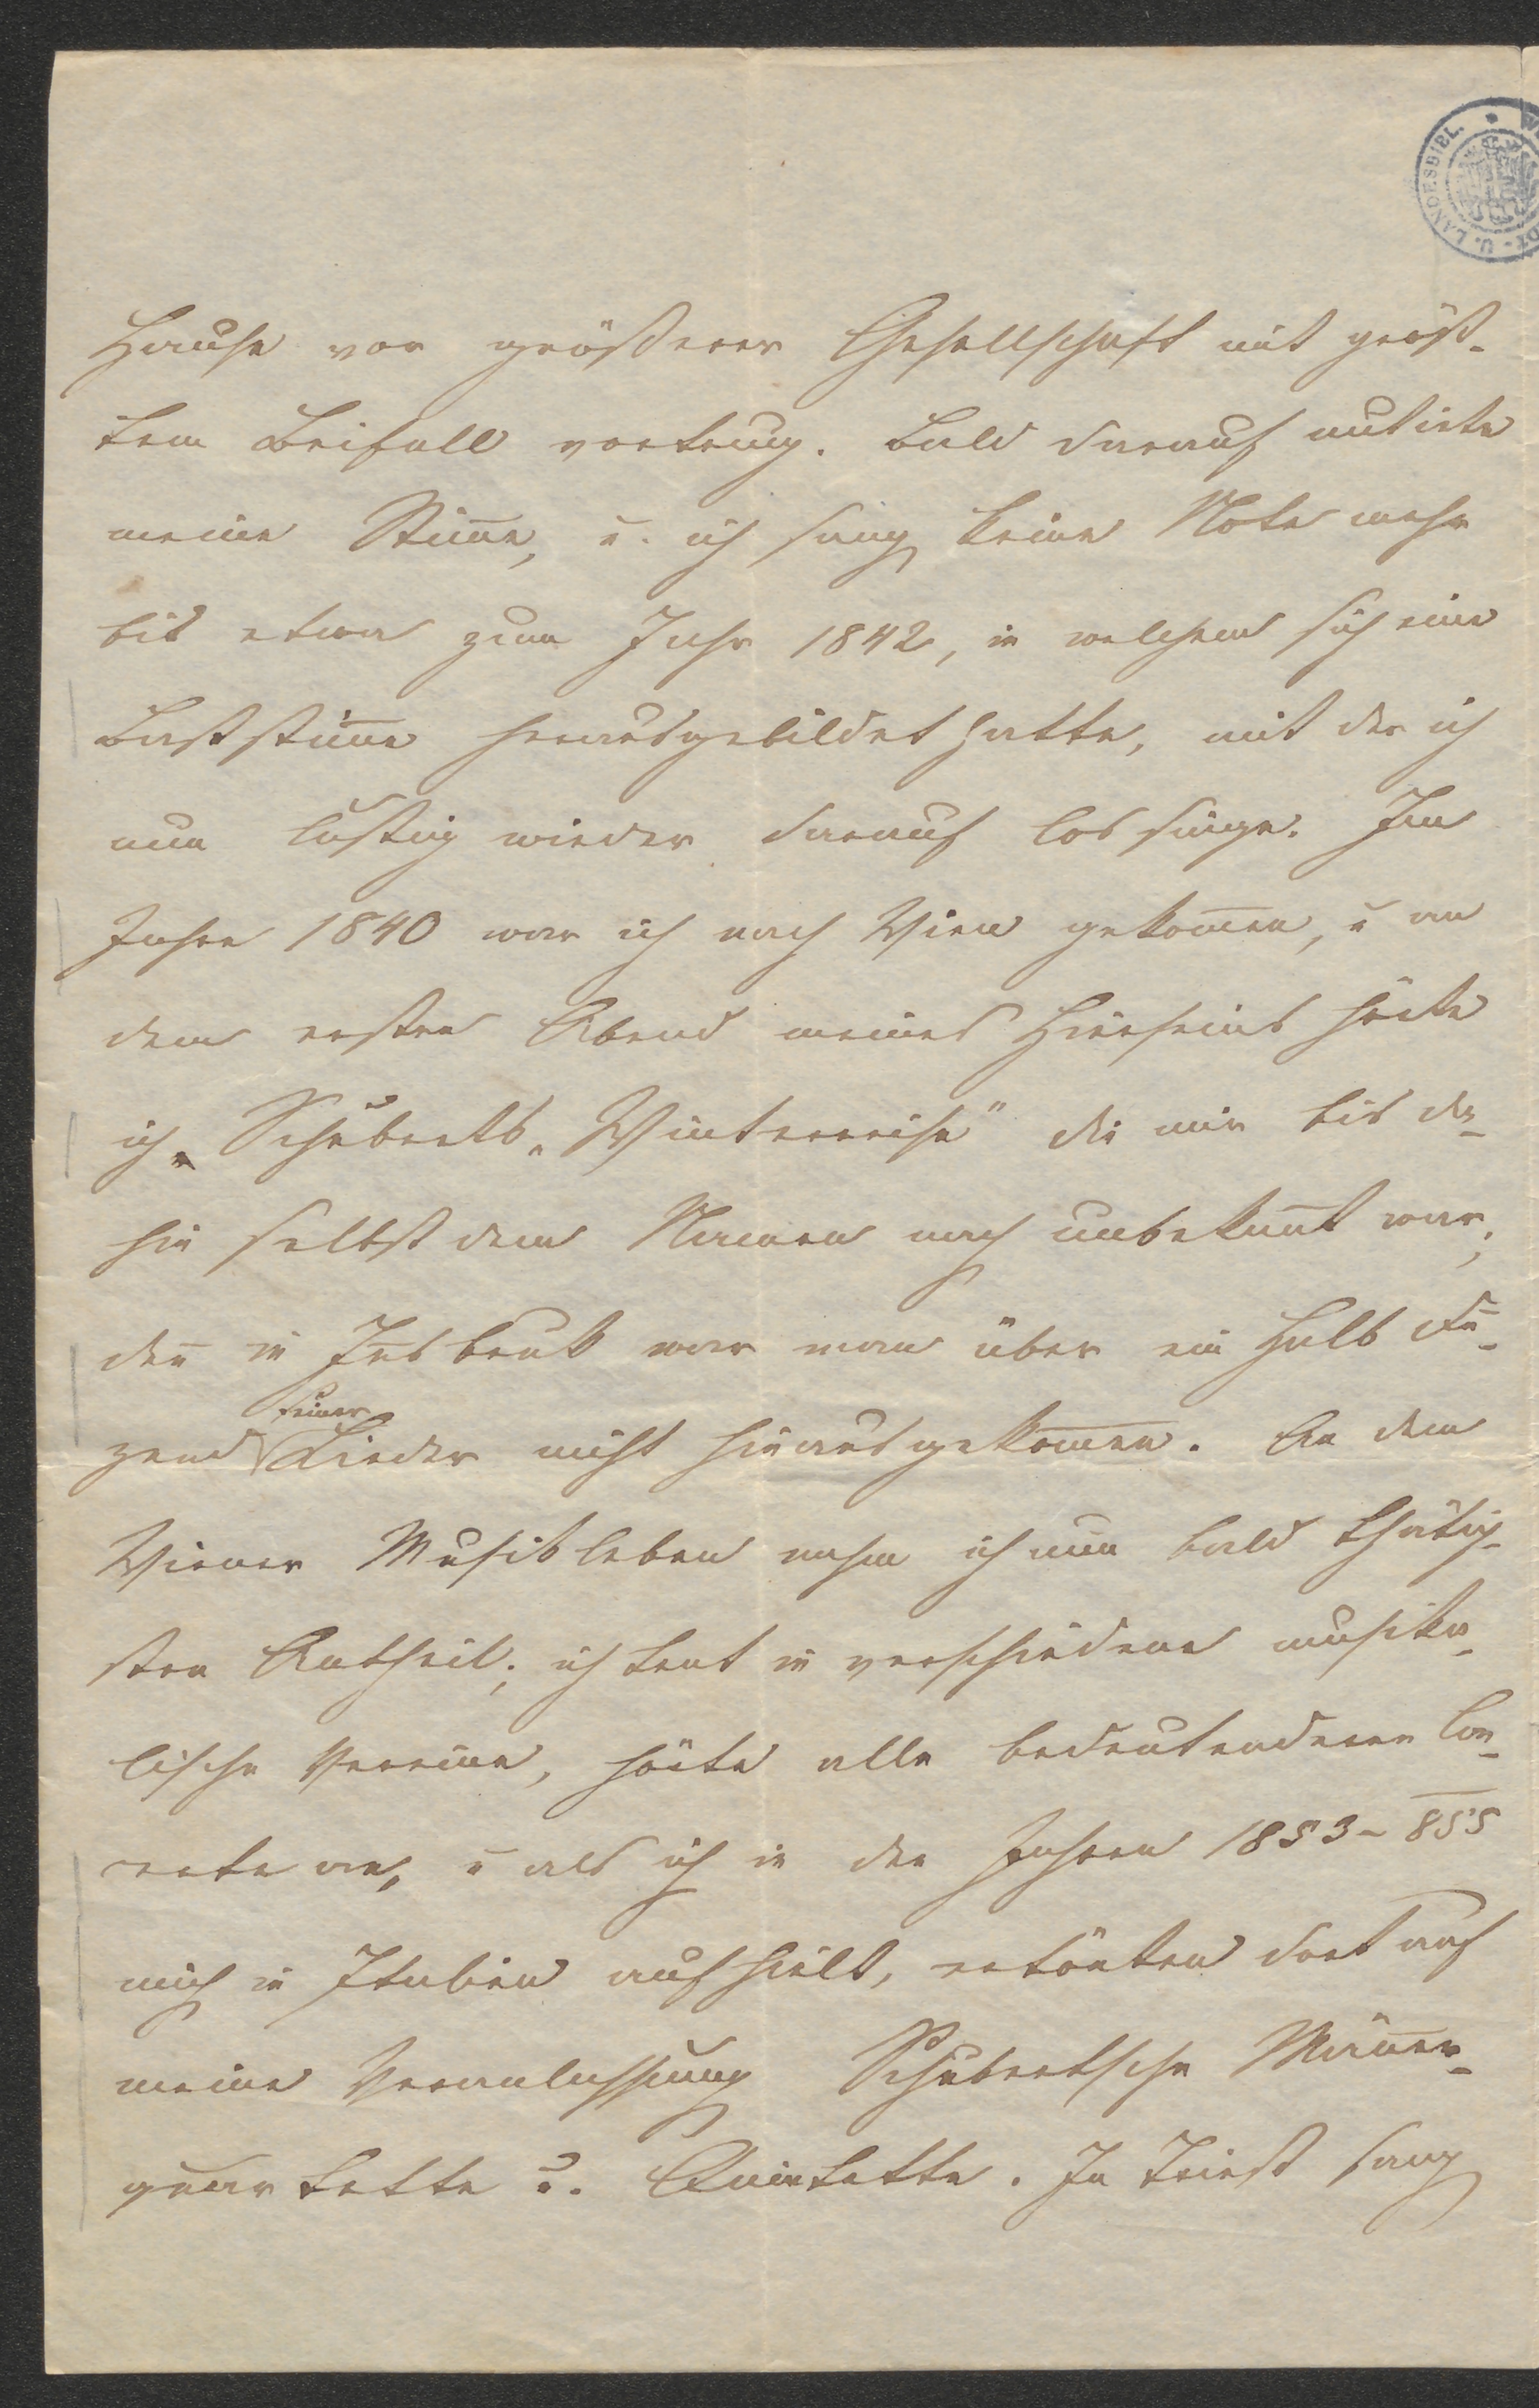 Hause vor größerer Gesellschaft mit größ-
tem Beifall vortrug. Bald darauf mutirte
meine Stim̄e, u. ich sang keine Note mehr
bis etwa zum Jahr 1842, in welchem sich eine
Baßstim̄e herausgebildet hatte, mit der ich
nun lustig wieder darauf los singe. Im
Jahre 1840 war ich nach Wien gekom̄en, u an
dem ersten Abend meines Hierseins hörte
ich Schuberts „Winterreise" die mir bis da-
hin selbst dem Namen nach unbekan̄t war;
den̄ in In̄sbruk war man über ein halb Du-
zend seiner Lieder nicht hinausgekom̄en. An dem
Wiener Musikleben nahm ich nun bald thätig-
sten Antheil; ich trat in verschiedene musika-
lische Vereine, hörte alle bedeutenderen Con-
certe an, u als ich in den Jahren 1853-855
mich in Italien aufhielt, ertönten dort auf
meine Veranlassung Schubertsche Män̄er-
quartette u. Quintette. In Triest sang
U. LANDESBIBL.